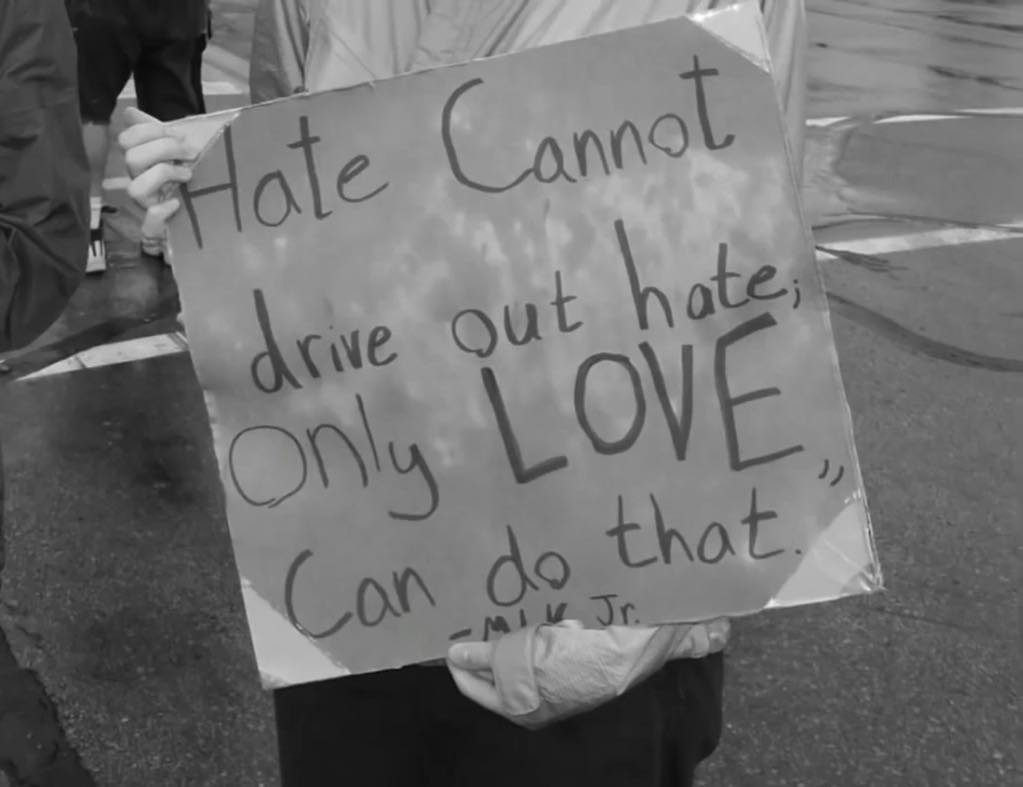 Hate Cannot
drive out hate;
Only LOVE
Can do that."
-MLK Jr.